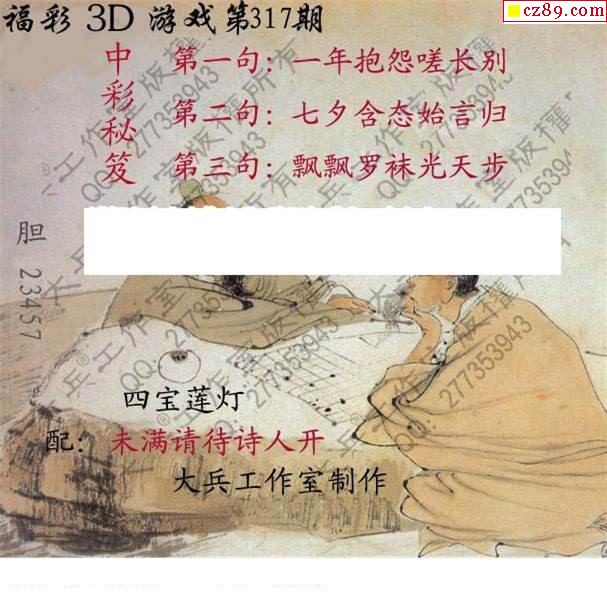 福彩 3D 游戏第317期
cz89.com
中彩秘笈
第一句：一年抱怨嗟长别
第二句：七夕含态始言归
第三句：飘飘罗袜光天步
胆 23457
四宝莲灯
配：未满请待诗人开
大兵工作室制作
大兵®工作室版权所有
QQ：277353943